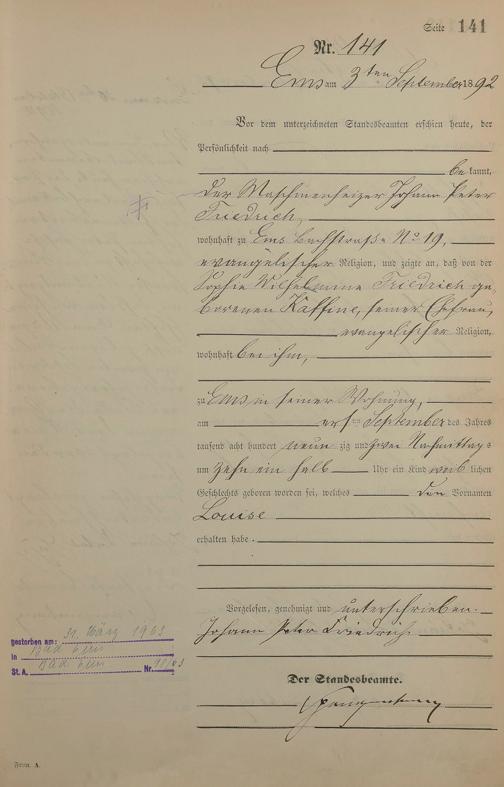 Seite 141
Nr. 141
Ems am 3ten September 1892
Vor dem unterzeichneten Standesbeamten erschien heute, der
Persönlichkeit nach
bekannt,
der Maschinenheizer Johann Peter
Friedrich,
wohnhaft zu Ems Bachstraße No 19,
evangelischer Religion, und zeigte an, daß von der
Sophie Wilhelmine Friedrich ge
borenen Käffine, seiner Ehefrau,
evangelischer Religion,
wohnhaft bei ihm,
zu Ems in seiner Wohnung,
am ersten September des Jahres
tausend acht hundert neunzig und zwei Nachmittags
um zehn ein halb Uhr ein Kind weiblichen
Geschlechts geboren worden sei, welches den Vornamen
Louise
erhalten habe.
Vorgelesen, genehmigt und unterschrieben.
Johann Peter Friedrich
Der Standesbeamte.
gestorben am: 31. März 1963
in Bad Ems
St. A. Bad Ems Nr. /63
Form. A.